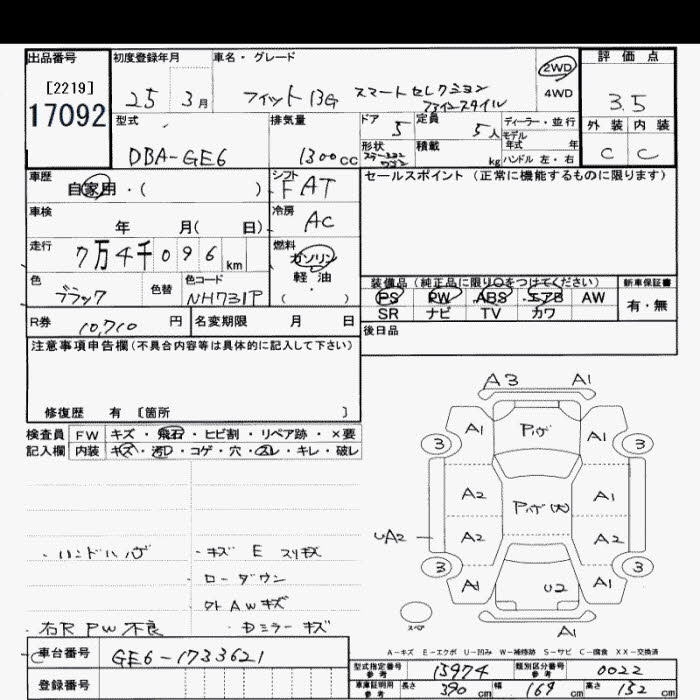 出品番号 初度登録年月 車名・グレード 評価点
[2219] 17092
25 3月 フィット 13G スマートセレクション
ファインスタイル
2WD
4WD
3.5
型式 排気量 ドア 定員 ディーラー・並行
DBA-GE6 1300cc 5 5人
モデル年式 年
形状 積載 kg ハンドル 左・右
外装 内装
C C
車歴 自家用・( ) シフト FAT
セールスポイント(正常に機能するものに限ります)
車検 年 月( 日) 冷房 AC
走行 7万4千096km 燃料 ガソリン
軽・油
( )
色 ブラック 色替 色コード NH731P
装備品(純正品に限り○をつけてください) 新車保証書
PS PW ABS エアB AW 有・無
SR ナビ TV カワ
R券 10,710円 名変期限 月 日
後日品
注意事項申告欄(不具合内容等は具体的に記入して下さい)
修復歴 有 〔箇所 〕
検査員 FW キズ・飛石・ヒビ割・リペア跡・×要
記入欄 内装 キズ・汚れ・コゲ・穴・スレ・キレ・破レ
・ハンドハゲ ・キズ E スリキズ
ローダウン
外AWキズ
・右R PW 不良 ・Dミラーキズ
A3 A1
A1 Pハゲ A1
3 3
A2 Pハゲ(大) A1
UA2 A2 A2
3 3
A1 U2 A1
スペア A1
A-キズ E-エクボ U-凹み W-補修跡 S-サビ C-腐食 XX-交換済
車台番号 GE6-1733621
登録番号
型式指定番号 参考 15974 類別区分番号 参考 0022
車庫証明用 参考 長さ 390cm 幅 169cm 高さ 152cm